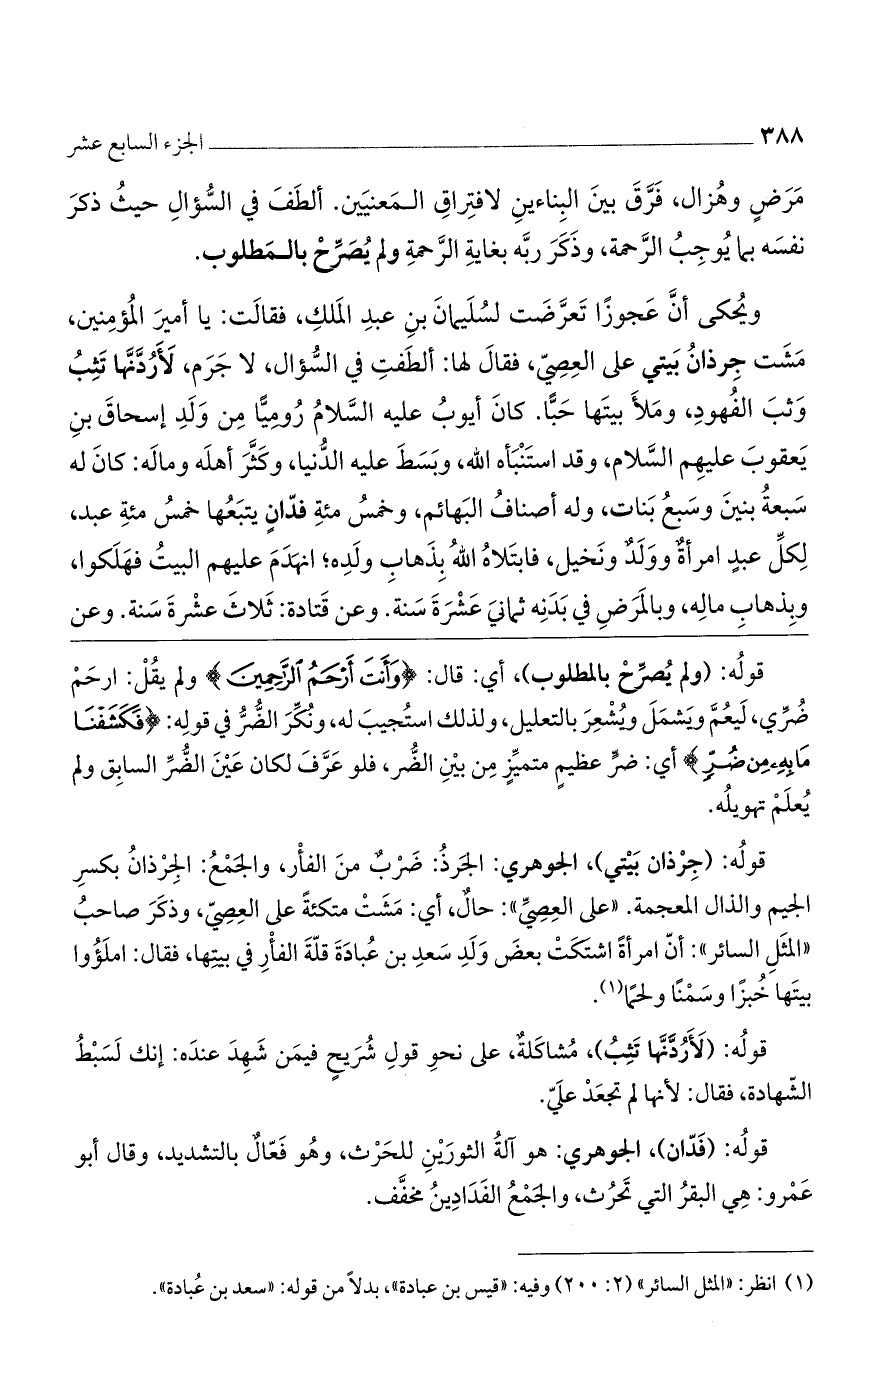 ٣٨٨ الجزء السابع عشر
مَرَضٍ وهُزال، فَرَّقَ بينَ البِناءينِ لافتِراقِ المَعنيَين. ألطَفَ في السُّؤالِ حيثُ ذكرَ
نفسَه بما يُوجِبُ الرَّحمة، وذَكَرَ ربَّه بغايةِ الرَّحمةِ ولم يُصَرِّحْ بالمَطلوب.
ويُحكى أنَّ عَجوزًا تَعرَّضَت لسُلَيمانَ بنِ عبدِ المَلكِ، فقالَت: يا أميرَ المُؤمنين،
مَشَت جِرذانُ بَيتي على العِصِيّ، فقالَ لها: ألطَفتِ في السُّؤال، لا جَرَم، لَأَرُدَّنَّها تَثِبُ
وَثبَ الفُهودِ، ومَلأَ بيتَها حَبًّا. كانَ أيوبُ عليه السَّلامُ رُوميًّا مِن وَلَدِ إسحاقَ بنِ
يَعقوبَ عليهِم السَّلام، وقد استَنْبَأه الله، وبَسَطَ عليه الدُّنيا، وكَثَّرَ أهلَه ومالَه: كانَ له
سَبعةُ بنينَ وسَبعُ بَنات، وله أصنافُ البَهائم، وخمسُ مئةِ فدّانٍ يتبَعُها خمسُ مئةِ عبد،
لِكلِّ عبدٍ امرأةٌ ووَلَدٌ ونَخيل، فابتَلاهُ اللهُ بِذَهابِ ولَدِه؛ انهدَمَ عليهم البيتُ فهَلَكوا،
وبِذهابِ مالِه، وبالمَرَضِ في بَدَنِه ثمانيَ عَشْرَةَ سَنة. وعن قَتادة: ثَلاثَ عشْرةَ سَنة. وعن
قولُه: (ولم يُصرِّحْ بالمطلوب)، أي: قال: ﴿وَأَنتَ أَرْحَمُ ٱلرَّٰحِمِينَ﴾ ولم يقُلْ: ارحَمْ
ضُرِّي، لَيعُمَّ ويَشمَلَ ويُشْعِرَ بالتعليل، ولذلك استُجيبَ له، ونُكِّرَ الضُّرُّ في قولِه: ﴿فَكَشَفْنَا
مَا بِهِۦ مِن ضُرٍّ﴾ أي: ضرٍّ عظيمٍ متميِّزٍ مِن بيْنِ الضُّر، فلو عَرَّفَ لكان عَيْنَ الضُّرِّ السابقِ ولم
يُعلَمْ تهويلُه.
قولُه: (جِرْذان بَيْتي)، الجوهري: الجَرذُ: ضَرْبٌ منَ الفأْر، والجَمْعُ: الجِرْذانُ بكسرِ
الجيم والذال المعجمة. «على العِصِيِّ»: حالٌ، أي: مَشَتْ متكئةً على العِصِيّ، وذكَرَ صاحبُ
«المثَلِ السائر»: أنّ امرأةً اشتكَتْ بعضَ وَلَدِ سَعدِ بن عُبادَةَ قلّةَ الفأرِ في بيتِها، فقال: املَؤُوا
بيتَها خُبزًا وسَمْنًا ولحمًا(١).
قولُه: (لَأَرُدَّنَّها تَثِبُ)، مُشاكَلةٌ، على نحوِ قولِ شُرَيحٍ فيمَن شَهِدَ عندَه: إنك لَسَبْطُ
الشّهادة، فقال: لأنها لم تجعَدْ عليّ.
قولُه: (فَدّان)، الجوهري: هو آلةُ الثورَيْنِ للحَرْث، وهُو فَعّالٌ بالتشديد، وقال أبو
عَمْرو: هِي البقرُ التي تَحرُث، والجَمْعُ الفَدَادِينُ مخفَّف.
(١) انظر: «المثل السائر» (٢: ٢٠٠) وفيه: «قيس بن عبادة»، بدلاً من قوله: «سعد بن عُبادة».